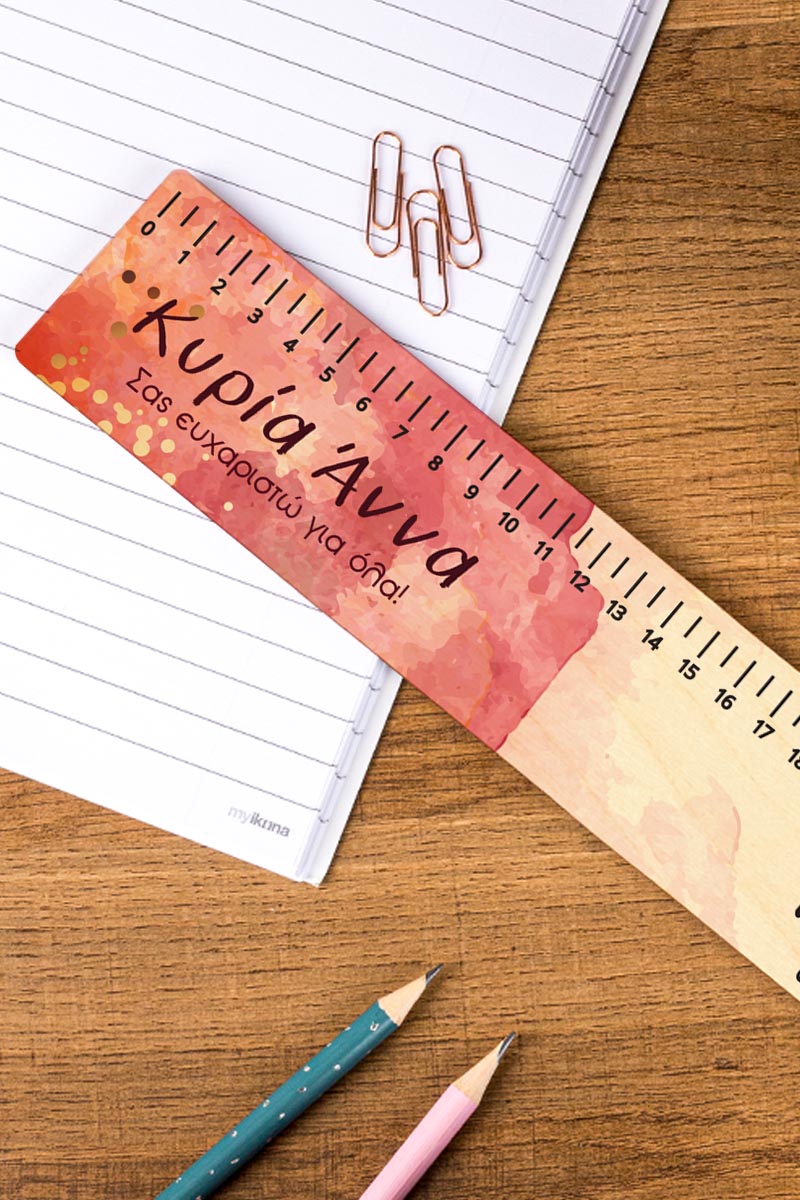 0 1 2 3 4 5 6 7 8 9 10 11 12 13 14 15 16 17 18
Κυρία Άννα
Σας ευχαριστώ για όλα!
myikona